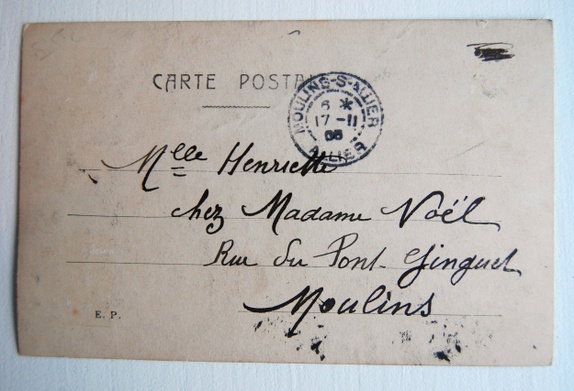 CARTE POSTALE
MOULINS-S-ALLIER
6 *
17 -11
ALLIER
Mlle Henriette
chez Madame Noël
Rue du Pont-Ginguet
Moulins
E. P.